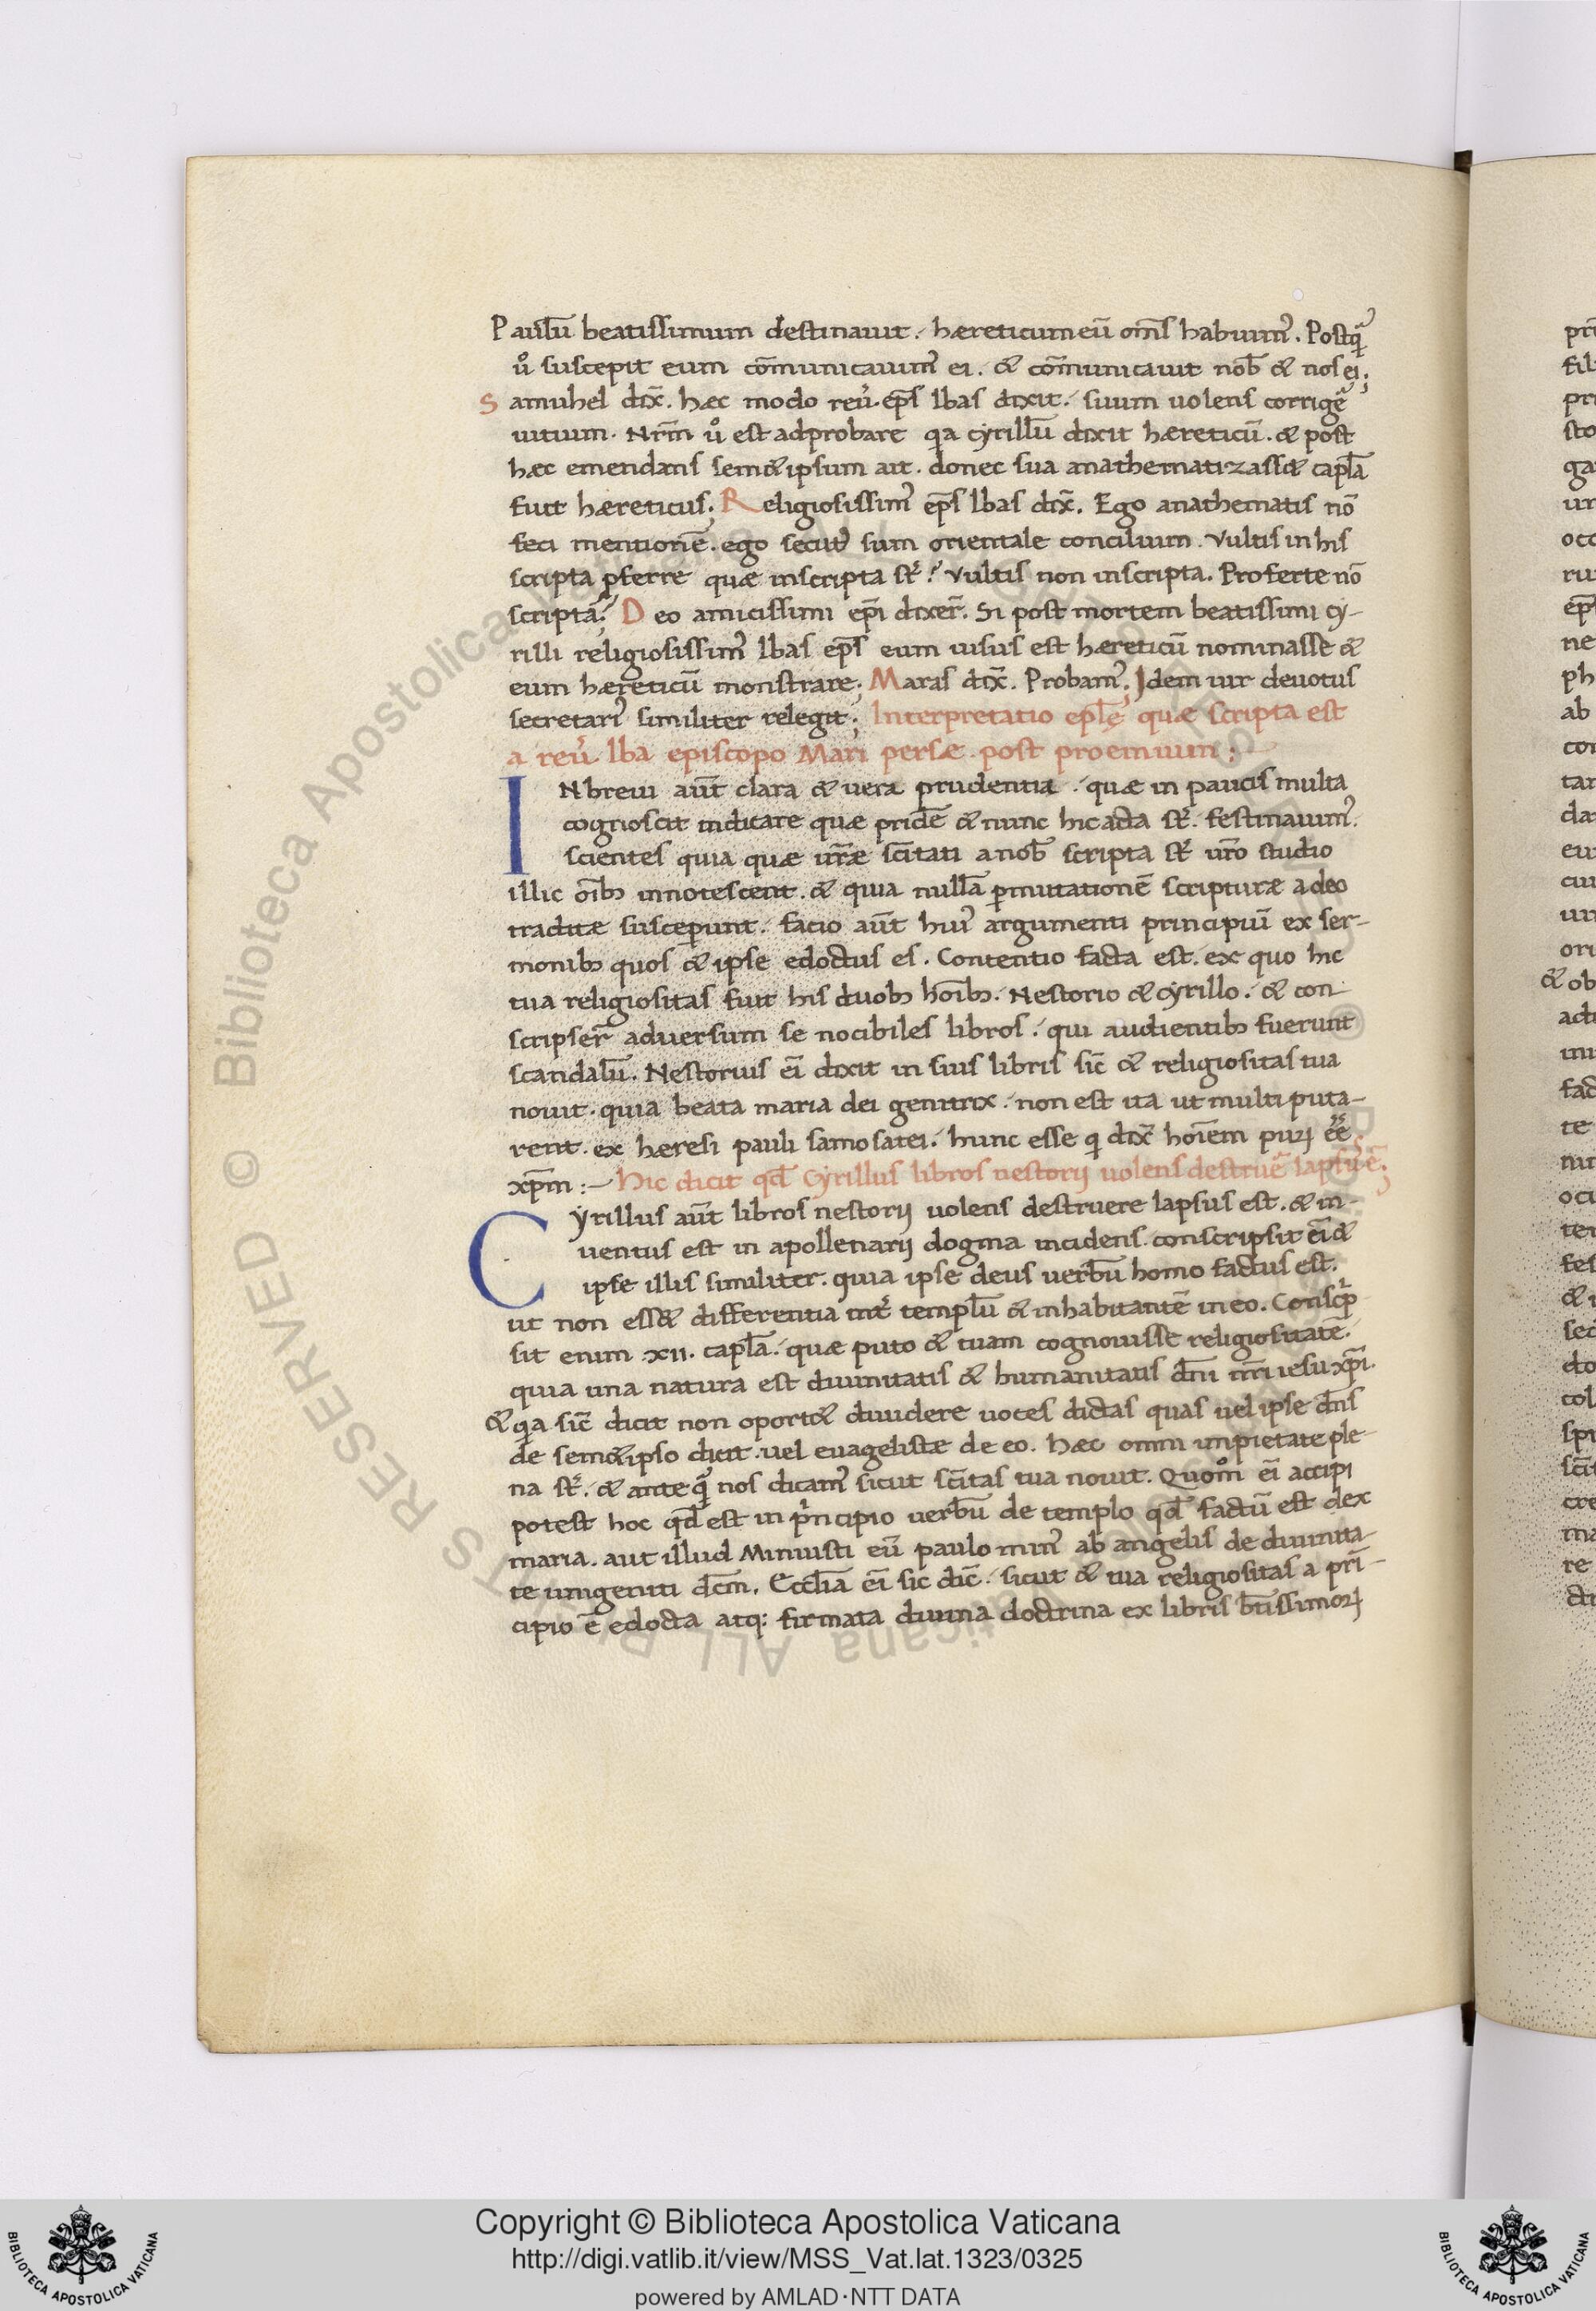 Paulū beatissimum destinauit. hæreticum eū om̄s habuimꝰ. Postq̄
u̓o suscepit eum cōmunicauimꝰ ei. & cōmunicauit nob̄ & nos ei;
Samuhel dix̄. hæc modo reu̓. ep̄s Ibas dixit. suum uolens corrige᷑
uitium. Nr̄m u̓o est adprobare qa cyrillū dixit hæreticū. & post
hæc emendans sem&ipsum ait. donec sua anathematizass& capl̄a
fuit hæreticus; Religiosissimꝰ ep̄s Ibas dix̄. Ego anathematis nō
feci mentionē. ego secutꝰ sum orientale concilium. Vultis in his
scripta ꝑferre quæ inscripta st̄? Vultis non inscripta. Proferte nō
scripta; Deo amicissimi ep̄i dixer̄. Si post mortem beatissimi cy-
rilli religiosissimꝰ Ibas ep̄s eum uisus est hæreticū nominasse &
eum hæreticū monstrare; Maras dix̄. Probamꝰ; Idem uir deuotus
secretariꝰ similiter relegit; Interpretatio epl̄ę quæ scripta est
a reu̓. Iba episcopo Mari persæ. post proemium:
IN breui aūt clara & uera prudentia. quæ in paucis multa
cognoscit indicare quæ pridē & nunc hic acta st̄. festinauimꝰ.
scientes quia quæ ur̄æ sc̄itati a nob̄ scripta st̄ ur̄o studio
illic oībꝫ innotescent. & quia nullā ꝑmutationē scripturæ a deo
traditæ susceperunt. facio aūt huiꝰ argumenti principiū ex ser-
monibꝫ quos & ipse edoctus es. Contentio facta est. ex quo hic
tua religiositas fuit his duobꝫ hoībꝫ. Nestorio & cyrillo. & con-
scripser̄ aduersum se nocibiles libros. qui audientibꝫ fuerunt
scandalū. Nestorius ēi dixit in suis libris sīc & religiositas tua
nouit. quia beata maria dei genitrix. non est ita ut multi puta-
rent. ex heresi pauli samosatei. hunc esse q dix̄ hoīem puꝝ ēē
xp̄m:- Hic dicit qd̄ Cyrillus libros nestorij uolens destrue᷑ lapsꝰ ē;
Cyrillus aūt libros nestorij uolens destruere lapsus est. & in-
uentus est in apollenarij dogma incidens. conscripsit ēi &
ipse illis similiter. quia ipse deus uerbū homo factus est.
ut non ess& differentia int̄ templū & inhabitantē in eo. Conscrip-
sit enim .xii. capl̄a. quæ puto & tuam cognouisse religiositatē.
quia una natura est diuinitatis & humanitatis dn̄i nr̄i iesu xp̄i.
& qa sīc dicit non oport& diuidere uoces dictas quas uel ipse dn̄s
de sem&ipso dicit. uel euagelistæ de eo. hæc omni impietate ple-
na st̄. & ante q̄ nos dicamꝰ sicut sc̄itas tua nouit. Quom̊ ēi accipi
potest hoc qd̄ est in principio uerbū de templo qd̄ factū est & ex
maria. aut illud Minuisti eū paulo minꝰ ab angelis de diuinita-
te unigeniti dc̄m. Ecclīa ēi sic dic̄. sicut & tua religiositas a prī-
cipio ē edocta atq: firmata diuina doctrina ex libris btīssimoꝝ
Copyright © Biblioteca Apostolica Vaticana
http://digi.vatlib.it/view/MSS_Vat.lat.1323/0325
powered by AMLAD·NTT DATA
BIBLIOTECA APOSTOLICA VATICANA
BIBLIOTECA APOSTOLICA VATICANA